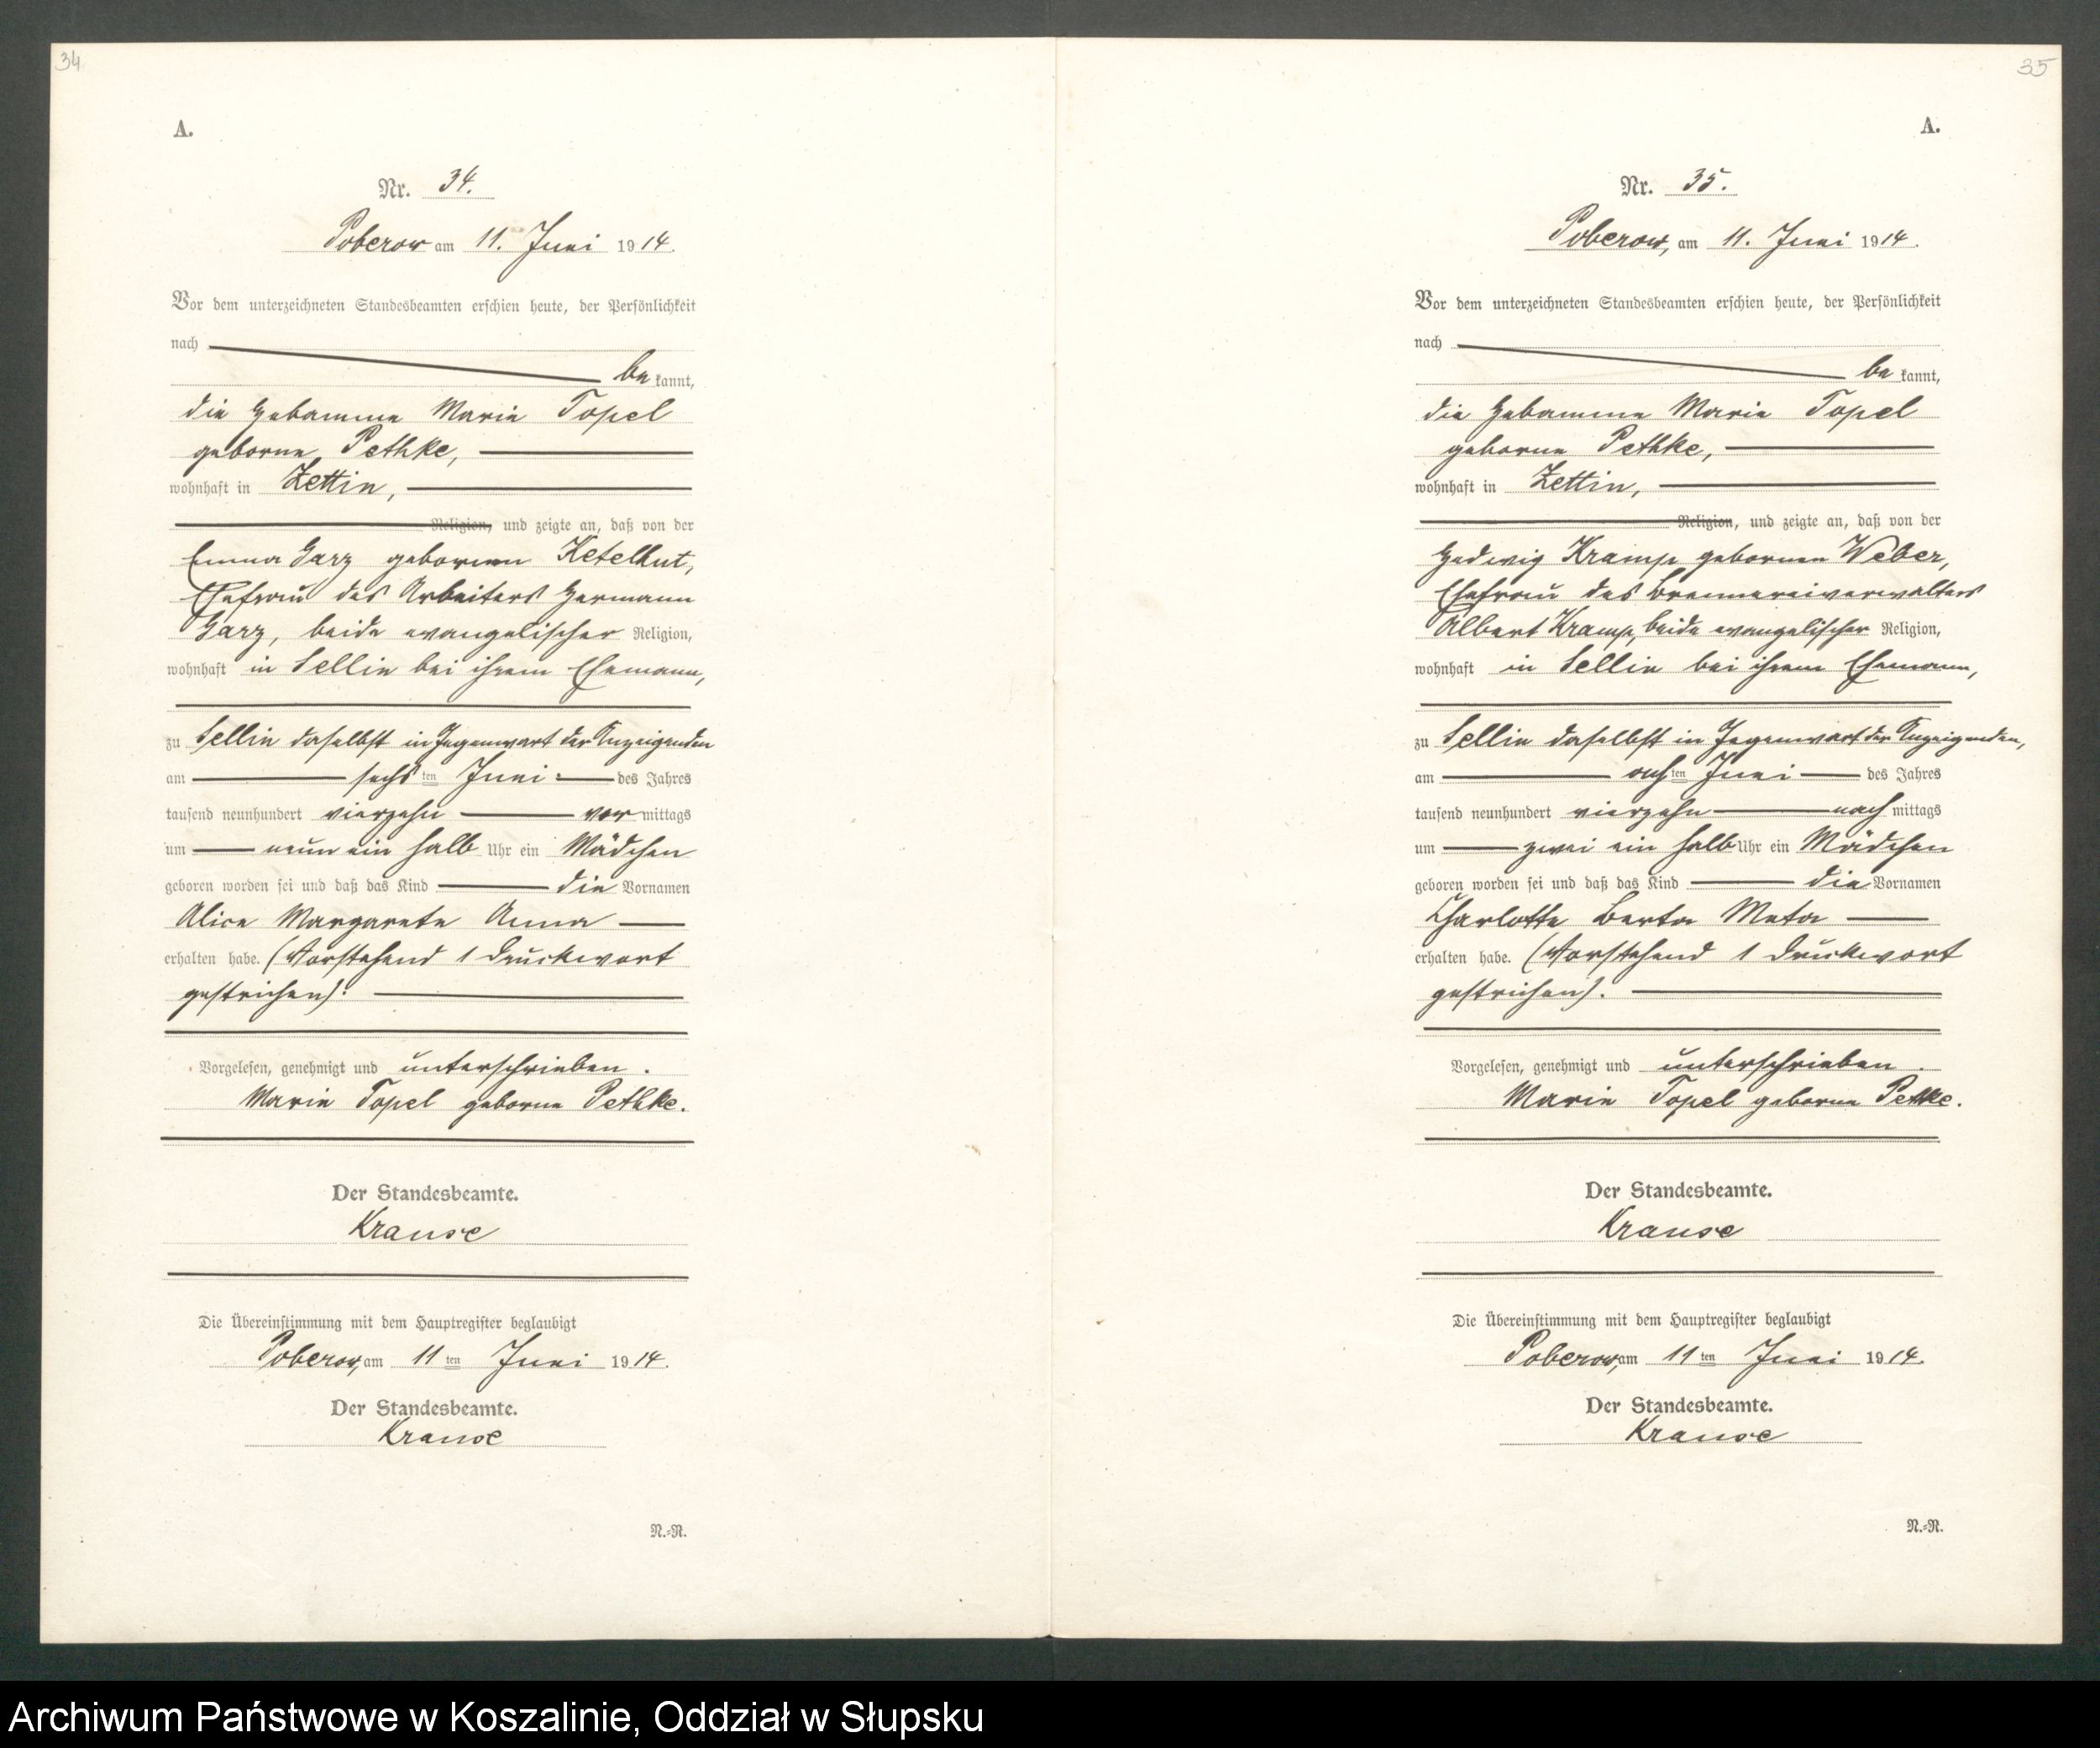 34
A.
Nr. 34.
Poberow am 11. Juni 1914.
Vor dem unterzeichneten Standesbeamten erschien heute, der Persönlichkeit
nach
be kannt,
die Hebamme Marie Topel
geborne Pethke,
wohnhaft in Zettin,
Religion, und zeigte an, daß von der
Emma Garz gebornen Ketelhut,
Ehefrau des Arbeiters Hermann
Garz, beide evangelischer Religion,
wohnhaft in Sellin bei ihrem Ehemann,
zu Sellin daselbst in Gegenwart der Anzeigenden
am sechsten Juni des Jahres
tausend neunhundert vierzehn vormittags
um neun ein halb Uhr ein Mädchen
geboren worden sei und daß das Kind die Vornamen
Alice Margarete Anna
erhalten habe. (Vorstehend 1 Druckwort
gestrichen).
Vorgelesen, genehmigt und unterschrieben.
Marie Topel geborne Pethke.
Der Standesbeamte.
Krause
Die Übereinstimmung mit dem Hauptregister beglaubigt
Poberow, am 11ten Juni 1914.
Der Standesbeamte.
Krause
N.=R.
35
A.
Nr. 35.
Poberow, am 11. Juni 1914.
Vor dem unterzeichneten Standesbeamten erschien heute, der Persönlichkeit
nach
be kannt,
die Hebamme Marie Topel
geborne Pethke,
wohnhaft in Zettin,
Religion, und zeigte an, daß von der
Hedwig Kramp gebornen Weber,
Ehefrau des Brennereiverwalters
Albert Kramp, beide evangelischer Religion,
wohnhaft in Sellin bei ihrem Ehemann,
zu Sellin daselbst in Gegenwart der Anzeigenden,
am achten Juni des Jahres
tausend neunhundert vierzehn nachmittags
um zwei ein halb Uhr ein Mädchen
geboren worden sei und daß das Kind die Vornamen
Charlotte Berta Meta
erhalten habe. (Vorstehend 1 Druckwort
gestrichen).
Vorgelesen, genehmigt und unterschrieben.
Marie Topel geborne Pethke.
Der Standesbeamte.
Krause
Die Übereinstimmung mit dem Hauptregister beglaubigt
Poberow, am 11ten Juni 1914.
Der Standesbeamte.
Krause
N.=R.
Archiwum Państwowe w Koszalinie, Oddział w Słupsku